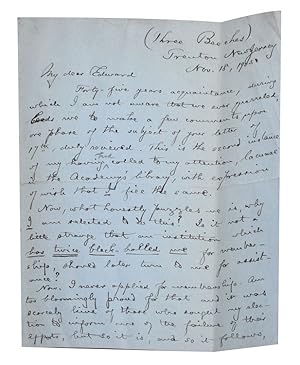 (Three Beeches)
Trenton New Jersey
Nov. 18,
My dear Edward
Forty five years acquaintance, during
which I am not aware that we ever quarreled,
leads me to make a few comments upon
one phase of the subject of your letter of
17th, duly received. This is the second instance
of my having had called to my attention, lacunae
in the Academy's Library, with expression
of wish that I fill the same.
Now, what honestly puzzles me is, why
I am selected to do this? Is it not a
little strange that an institution which
has twice black-balled me for member-
ship, should later turn to me for assist-
ance?
Now, I never applied for membership. Am
too bloomingly proud for that and it was
scarcely kind of those who sought my elec-
tion to inform me of the failure of their
efforts, but so it is, and so it follows,